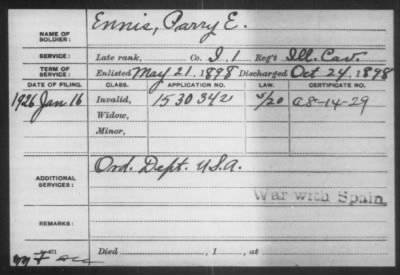 NAME OF SOLDIER: Ennis, Parry E.
SERVICE: Late rank, Co. I, 1 Reg't Ill. Cav.
TERM OF SERVICE: Enlisted May 21, 1898 Discharged Oct 24, 1898
DATE OF FILING. CLASS. APPLICATION NO. LAW. CERTIFICATE NO.
1926 Jan 16 Invalid, 1530342 5/20 C8-14-29
Widow,
Minor,
ADDITIONAL SERVICES: Ord. Dept. U.S.A.
War with Spain
REMARKS:
Died , 1 , at